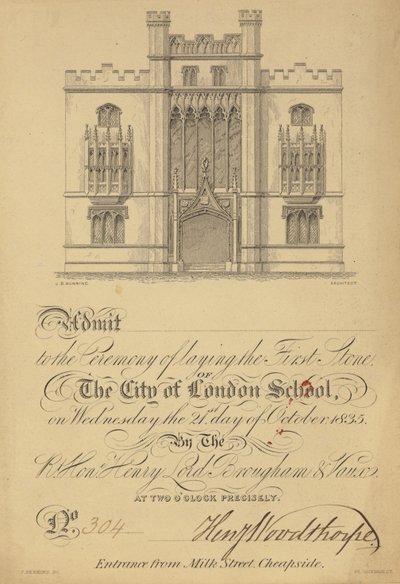 J. B. BUNNING. ARCHITECT.
Admit
to the Ceremony of laying the First Stone,
OF
The City of London School,
on Wednesday the 21st day of October 1835.
By The
Rt. Hon. Henry Lord Brougham & Vaux
AT TWO O'CLOCK PRECISELY.
No. 304
Henry Woodthorpe
Entrance from Milk Street, Cheapside.